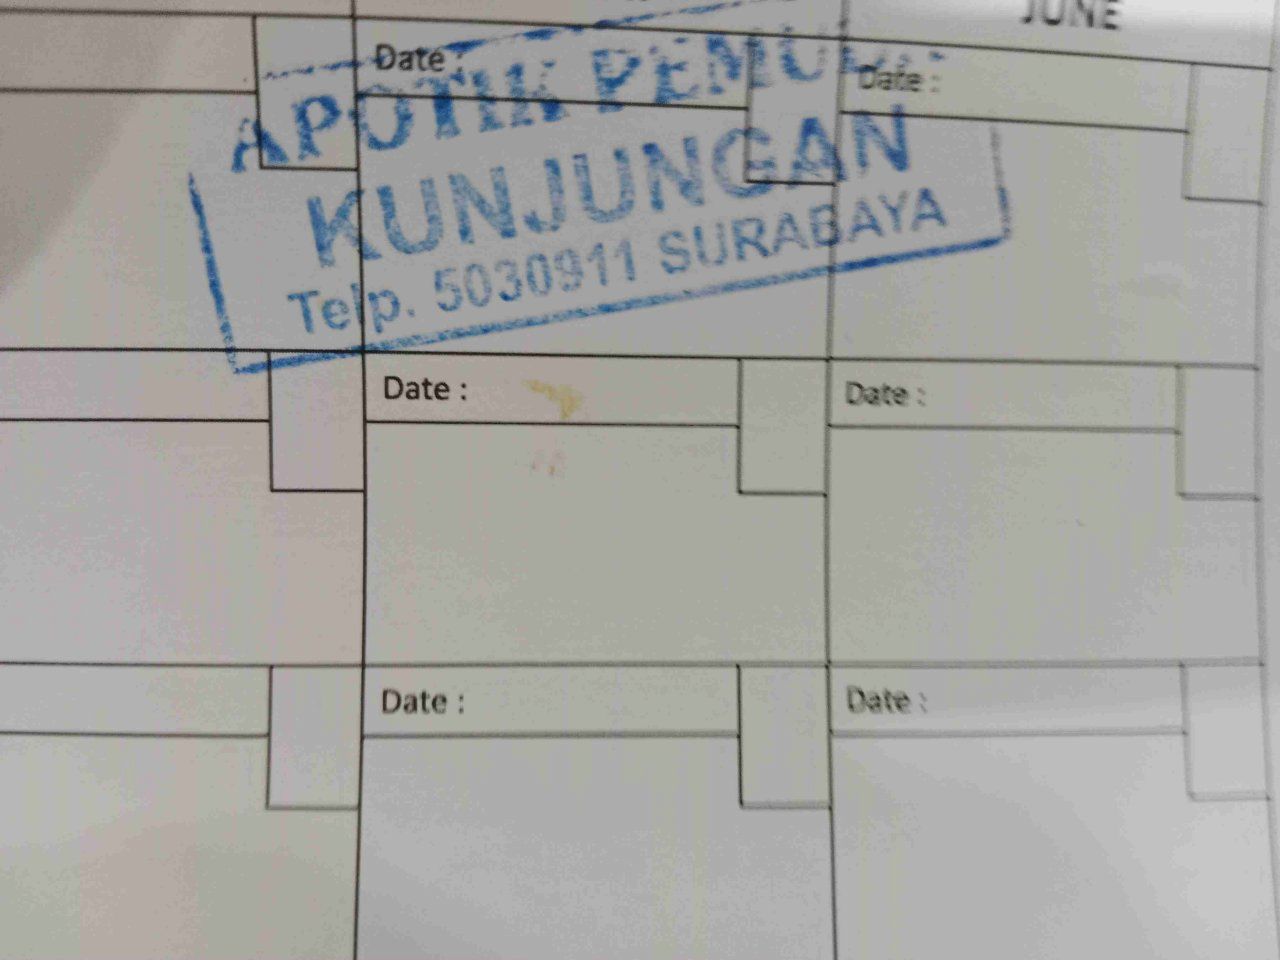 JUNE
Date :
Date :
APOTIK
KUNJUNGAN
Telp. 5030911 SURABAYA
Date :
Date :
Date :
Date :